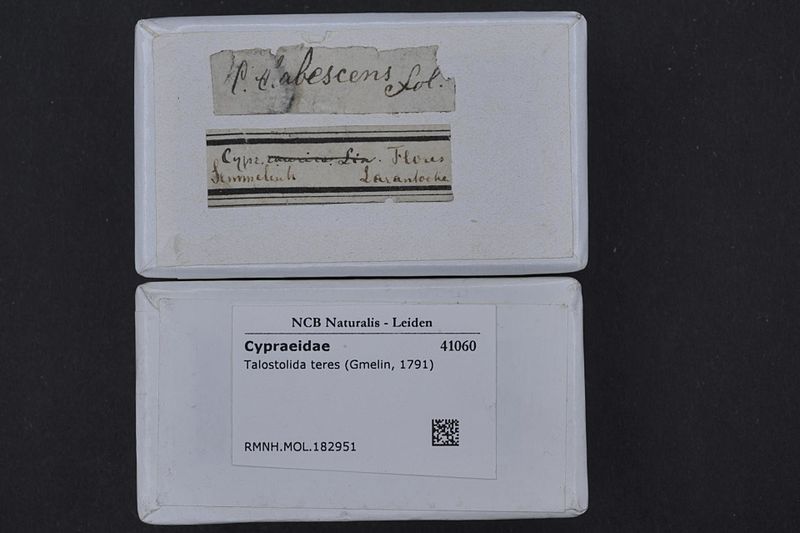 C. tabescens Sol.
Cypr. caurica. Lin. Flores
Semmelink Larantoeka
NCB Naturalis - Leiden
Cypraeidae 41060
Talostolida teres (Gmelin, 1791)
RMNH.MOL.182951